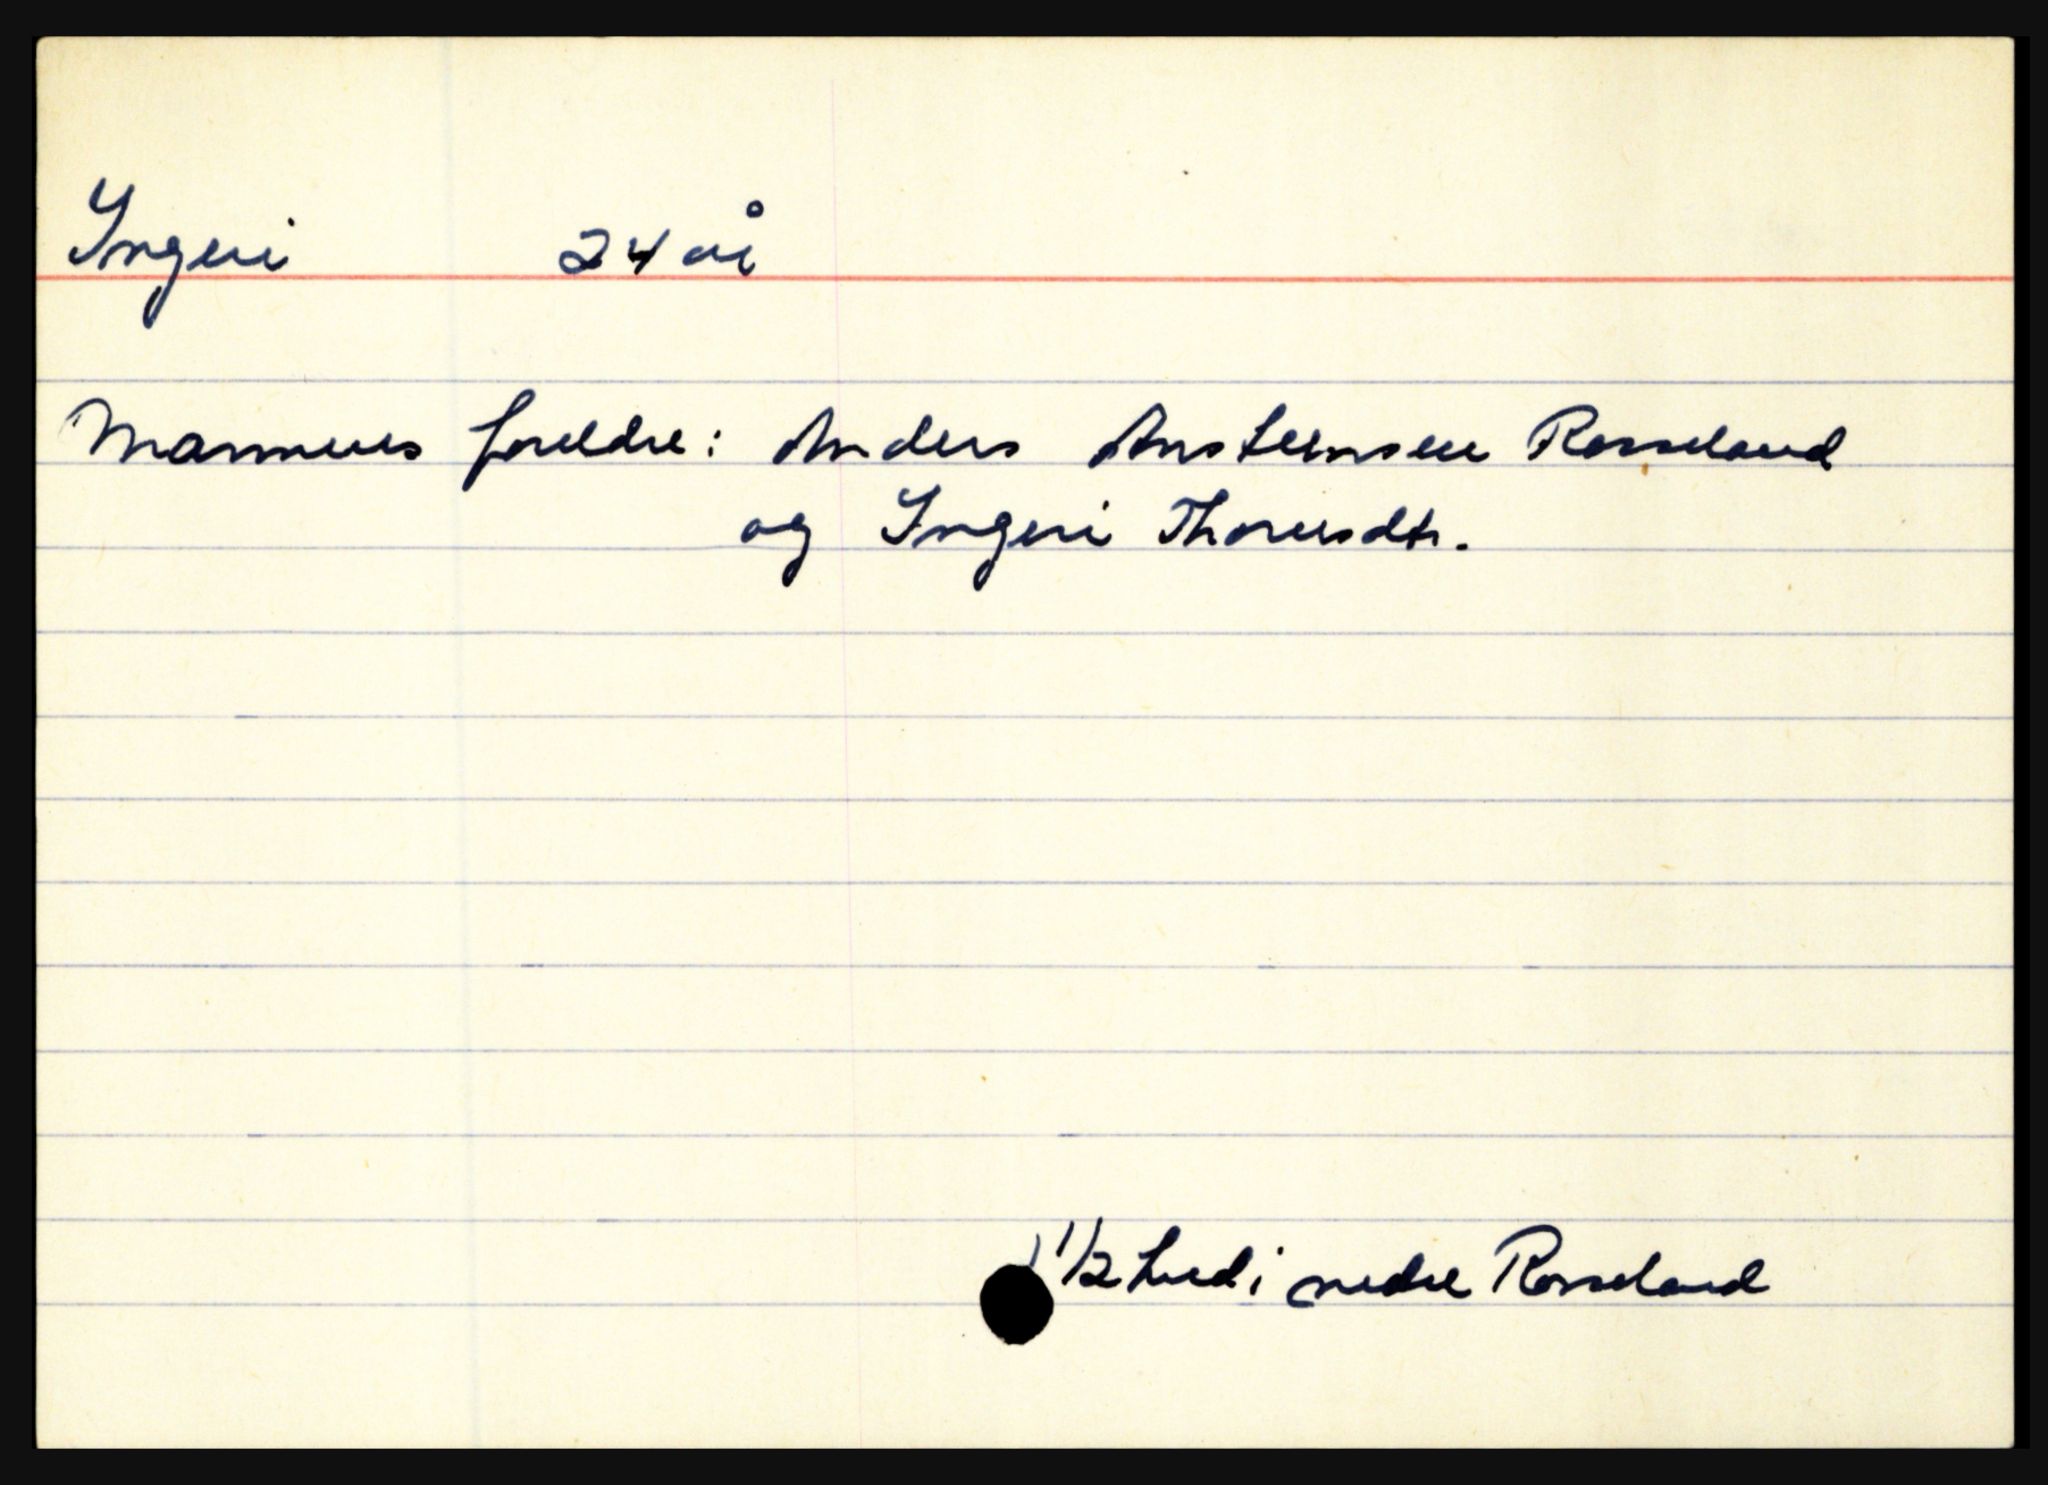 Ingeri 24 år
Mannens foreldre: Anders Ansteinsen Rosseland
og Ingeri Thoresdtr.
1 1/2 hud i nedre Rosseland